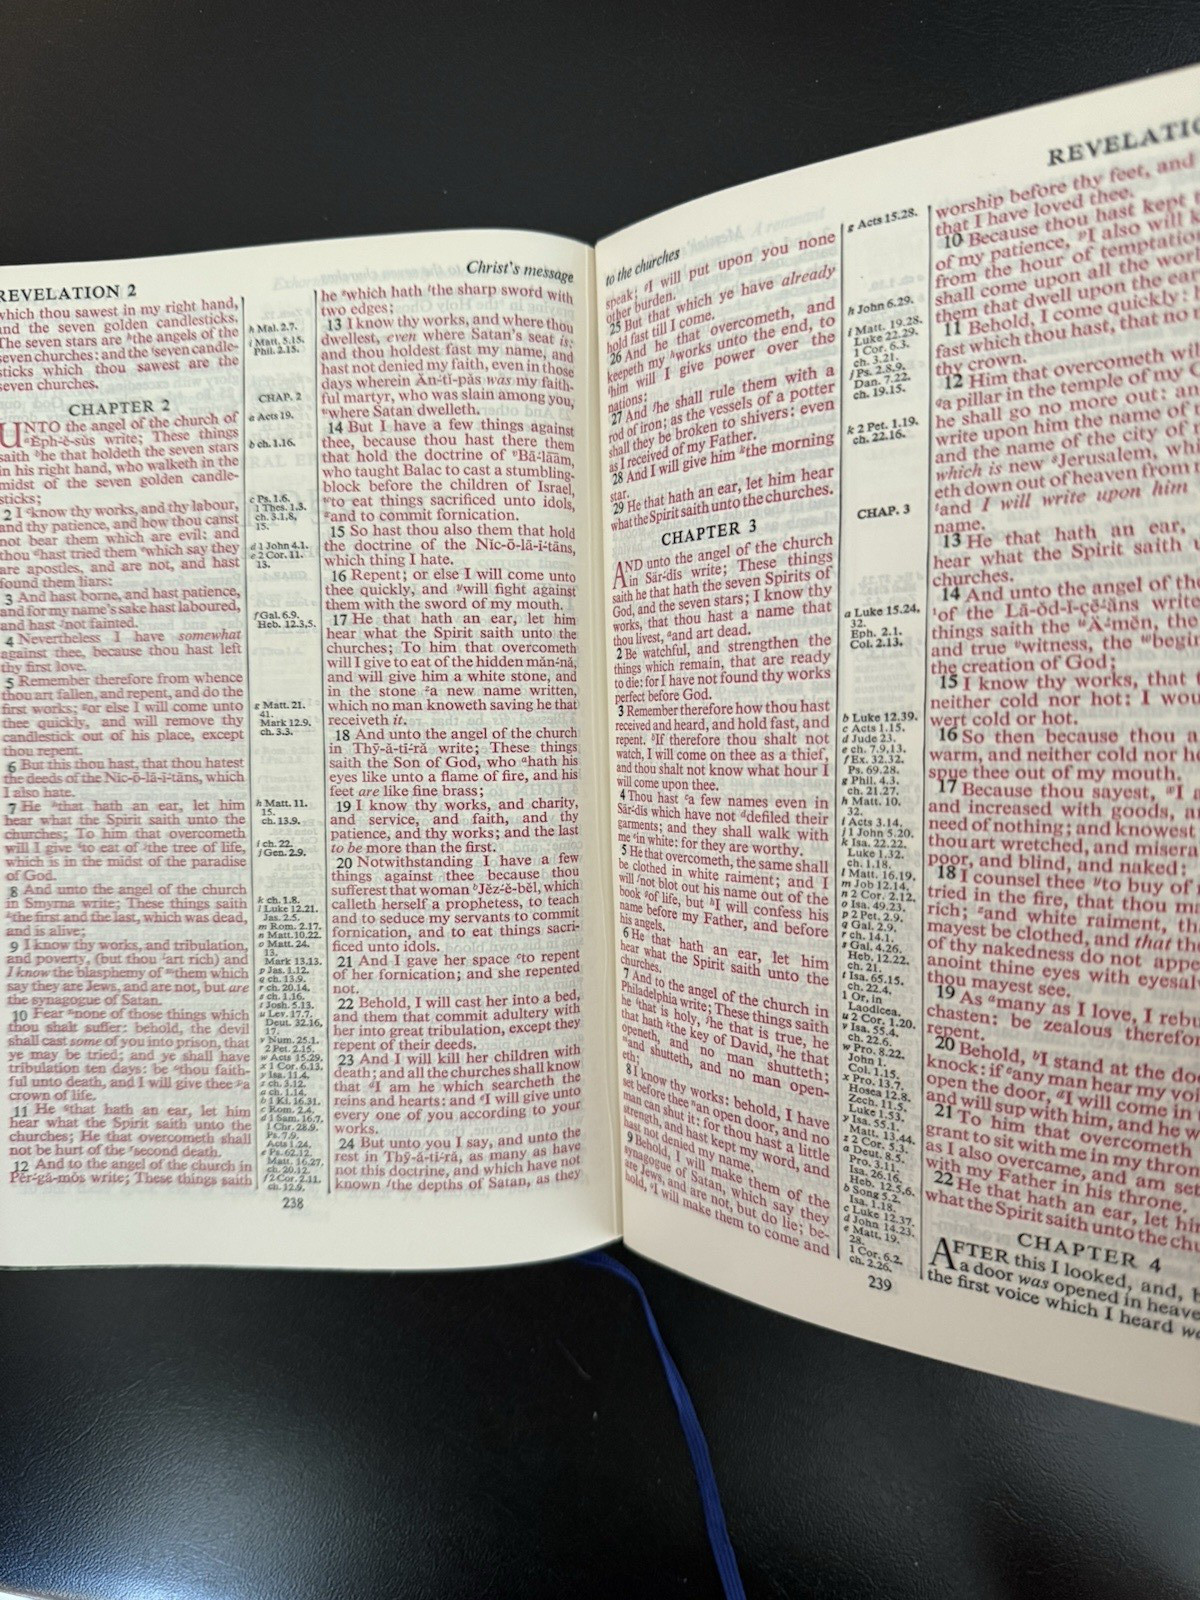 REVELATION 2
which thou sawest in my right hand,
and the seven golden candlesticks.
The seven stars are hthe angels of the
seven churches: and the iseven candle-
sticks which thou sawest are the
seven churches.
CHAPTER 2
UNTO the angel of the church of
aĔph-ĕ-sŭs write; These things
saith bhe that holdeth the seven stars
in his right hand, who walketh in the
midst of the seven golden candle-
sticks;
2 I cknow thy works, and thy labour,
and thy patience, and how thou canst
not bear them which are evil: and
thou dhast tried them ewhich say they
are apostles, and are not, and hast
found them liars:
3 And hast borne, and hast patience,
and for my name's sake hast laboured,
and hast fnot fainted.
4 Nevertheless I have somewhat
against thee, because thou hast left
thy first love.
5 Remember therefore from whence
thou art fallen, and repent, and do the
first works; gor else I will come unto
thee quickly, and will remove thy
candlestick out of his place, except
thou repent.
6 But this thou hast, that thou hatest
the deeds of the Nĭc-ō-lā-ĭ-tāns, which
I also hate.
7 He hthat hath an ear, let him
hear what the Spirit saith unto the
churches; To him that overcometh
will I give ito eat of jthe tree of life,
which is in the midst of the paradise
of God.
8 And unto the angel of the church
in Smyrna write; These things saith
kthe first and the last, which was dead,
and is alive;
9 I know thy works, and tribulation,
and poverty, (but thou lart rich) and
I know the blasphemy of mthem which
say they are Jews, and are not, but are
the synagogue of Satan.
10 Fear nnone of those things which
thou shalt suffer: behold, the devil
shall cast some of you into prison, that
ye may be tried; and ye shall have
tribulation ten days: be othou faith-
ful unto death, and I will give thee pa
crown of life.
11 He qthat hath an ear, let him
hear what the Spirit saith unto the
churches; He that overcometh shall
not be hurt of the rsecond death.
12 And to the angel of the church in
Pẽr-gă-mŏs write; These things saith
h Mal. 2.7.
i Matt. 5.15.
Phil. 2.15.
CHAP. 2
a Acts 19.
b ch. 1.16.
c Ps. 1.6.
1 Thes. 1.3.
ch. 3.1,8,
15.
d 1 John 4.1.
e 2 Cor. 11.
13.
f Gal. 6.9.
Heb. 12.3,5.
g Matt. 21.
41.
Mark 12.9.
ch. 3.3.
h Matt. 11.
15.
ch. 13.9.
i ch. 22.
j Gen. 2.9.
k ch. 1.8.
l Luke 12.21.
Jas. 2.5.
m Rom. 2.17.
n Matt. 10.22.
o Matt. 24.
13.
Mark 13.13.
p Jas. 1.12.
q ch. 13.9.
r ch. 20.14.
s ch. 1.16.
t Josh. 5.13.
u Lev. 17.7.
Deut. 32.16,
17.
v Num. 25.1.
2 Pet. 2.15.
w Acts 15.29.
x 1 Cor. 6.13.
y Isa. 11.4.
z ch. 3.12.
a ch. 1.14.
b 1 Ki. 16.31.
c Rom. 2.4.
d 1 Sam. 16.7.
1 Chr. 28.9.
Ps. 7.9.
Acts 1.24.
e Ps. 62.12.
Matt. 16.27.
ch. 20.12.
f 2 Cor. 2.11.
ch. 12.9.
238
Christ's message
he swhich hath tthe sharp sword with
two edges;
13 I know thy works, and where thou
dwellest, even where Satan's seat is:
and thou holdest fast my name, and
hast not denied my faith, even in those
days wherein Ăn-tĭ-păs was my faith-
ful martyr, who was slain among you,
uwhere Satan dwelleth.
14 But I have a few things against
thee, because thou hast there them
that hold the doctrine of vBā-lāăm,
who taught Balac to cast a stumbling-
block before the children of Israel,
wto eat things sacrificed unto idols,
xand to commit fornication.
15 So hast thou also them that hold
the doctrine of the Nĭc-ō-lā-ĭ-tāns,
which thing I hate.
16 Repent; or else I will come unto
thee quickly, and ywill fight against
them with the sword of my mouth.
17 He that hath an ear, let him
hear what the Spirit saith unto the
churches; To him that overcometh
will I give to eat of the hidden măn-nă,
and will give him a white stone, and
in the stone za new name written,
which no man knoweth saving he that
receiveth it.
18 And unto the angel of the church
in Thȳ-ă-tī-ră write; These things
saith the Son of God, who ahath his
eyes like unto a flame of fire, and his
feet are like fine brass;
19 I know thy works, and charity,
and service, and faith, and thy
patience, and thy works; and the last
to be more than the first.
20 Notwithstanding I have a few
things against thee because thou
sufferest that woman bJĕz-ĕ-bĕl, which
calleth herself a prophetess, to teach
and to seduce my servants to commit
fornication, and to eat things sacri-
ficed unto idols.
21 And I gave her space cto repent
of her fornication; and she repented
not.
22 Behold, I will cast her into a bed,
and them that commit adultery with
her into great tribulation, except they
repent of their deeds.
23 And I will kill her children with
death; and all the churches shall know
that dI am he which searcheth the
reins and hearts: and eI will give unto
every one of you according to your
works.
24 But unto you I say, and unto the
rest in Thȳ-ă-tī-ră, as many as have
not this doctrine, and which have not
known fthe depths of Satan, as they
to the churches
speak; gI will put upon you none
other burden.
25 But that which ye have already
hold fast till I come.
26 And he that overcometh, and
keepeth my hworks unto the end, to
ihim will I give power over the
nations:
27 And jhe shall rule them with a
rod of iron; as the vessels of a potter
shall they be broken to shivers: even
as I received of my Father.
28 And I will give him kthe morning
star.
29 He that hath an ear, let him hear
what the Spirit saith unto the churches.
CHAPTER 3
AND unto the angel of the church
in Sär-dĭs write; These things
saith he that hath the seven Spirits of
God, and the seven stars; I know thy
works, that thou hast a name that
thou livest, aand art dead.
2 Be watchful, and strengthen the
things which remain, that are ready
to die: for I have not found thy works
perfect before God.
3 Remember therefore how thou hast
received and heard, and hold fast, and
repent. bIf therefore thou shalt not
watch, I will come on thee as a thief,
and thou shalt not know what hour I
will come upon thee.
4 Thou hast ca few names even in
Sär-dĭs which have not ddefiled their
garments; and they shall walk with
me ein white: for they are worthy.
5 He that overcometh, the same shall
be clothed in white raiment; and I
will fnot blot out his name out of the
book gof life, but hI will confess his
name before my Father, and before
his angels.
6 He that hath an ear, let him
hear what the Spirit saith unto the
churches.
7 And to the angel of the church in
Philadelphia write; These things saith
he ithat is holy, jhe that is true, he
that hath kthe key of David, lhe that
openeth, and no man shutteth;
mand shutteth, and no man open-
eth;
8 I know thy works: behold, I have
set before thee nan open door, and no
man can shut it: for thou hast a little
strength, and hast kept my word, and
hast not denied my name.
9 Behold, I will make them of the
synagogue of Satan, which say they
are Jews, and are not, but do lie; be-
hold, oI will make them to come and
g Acts 15.28.
h John 6.29.
i Matt. 19.28.
Luke 22.29.
1 Cor. 6.3.
ch. 3.21.
j Ps. 2.8,9.
Dan. 7.22.
ch. 19.15.
k 2 Pet. 1.19.
ch. 22.16.
CHAP. 3
a Luke 15.24,
32.
Eph. 2.1.
Col. 2.13.
b Luke 12.39.
c Acts 1.15.
d Jude 23.
e ch. 7.9,13.
f Ex. 32.32.
Ps. 69.28.
g Phil. 4.3.
ch. 21.27.
h Matt. 10.
32.
i Acts 3.14.
j 1 John 5.20.
k Isa. 22.22.
Luke 1.32.
ch. 1.18.
l Matt. 16.19.
m Job 12.14.
n 2 Cor. 2.12.
o Isa. 49.23.
p 2 Pet. 2.9.
q Gal. 2.9.
r ch. 14.1.
s Gal. 4.26.
Heb. 12.22.
ch. 21.
t Isa. 65.15.
ch. 22.4.
1 Or, in
Laodicea.
u 2 Cor. 1.20.
v Isa. 55.4.
ch. 22.6.
w Pro. 8.22.
John 1.
Col. 1.15.
x Pro. 13.7.
Hosea 12.8.
Zech. 11.5.
Luke 1.53.
y Isa. 55.1.
Matt. 13.44.
z 2 Cor. 5.3.
a Deut. 8.5.
Pro. 3.11.
Isa. 26.16.
Heb. 12.5,6.
b Song 5.2.
Isa. 1.18.
c Luke 12.37.
d John 14.23.
e Matt. 19.
28.
1 Cor. 6.2.
ch. 2.26.
239
REVELATIO
worship before thy feet, and
that I have loved thee.
10 Because thou hast kept
of my patience, pI also will
from the hour of temptation
shall come upon all the wor
them that dwell upon the ear
11 Behold, I come quickly:
fast which thou hast, that no
thy crown.
12 Him that overcometh wil
qa pillar in the temple of my G
he shall go no more out: an
write upon him the name of
and the name of the city of m
which is new sJerusalem, wh
eth down out of heaven from
tand I will write upon him
name.
13 He that hath an ear,
hear what the Spirit saith u
churches.
14 And unto the angel of the
1of the Lā-ŏd-ĭ-çē-ăns write
things saith the uĀ-mĕn, the
and true vwitness, the wbegin
the creation of God;
15 I know thy works, that t
neither cold nor hot: I wou
wert cold or hot.
16 So then because thou a
warm, and neither cold nor h
spue thee out of my mouth.
17 Because thou sayest, xI a
and increased with goods, a
need of nothing; and knowest
thou art wretched, and misera
poor, and blind, and naked:
18 I counsel thee yto buy of
tried in the fire, that thou m
rich; zand white raiment, th
mayest be clothed, and that th
of thy nakedness do not appe
anoint thine eyes with eyesal
thou mayest see.
19 As amany as I love, I rebu
chasten: be zealous therefor
repent.
20 Behold, bI stand at the do
knock: if cany man hear my vo
open the door, dI will come in
and will sup with him, and he w
21 To him that overcometh
grant to sit with me in my thron
as I also overcame, and am se
with my Father in his throne.
22 He that hath an ear, let hi
what the Spirit saith unto the chu
CHAPTER 4
AFTER this I looked, and, b
a door was opened in heave
the first voice which I heard wa